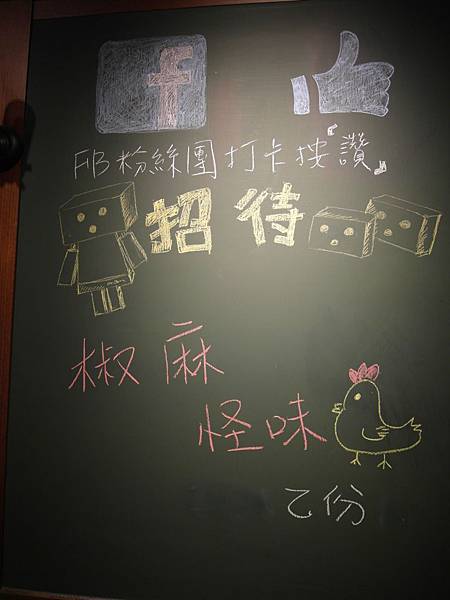 f
FB粉絲團打卡按『讚』
招待
椒麻
怪味
乙份